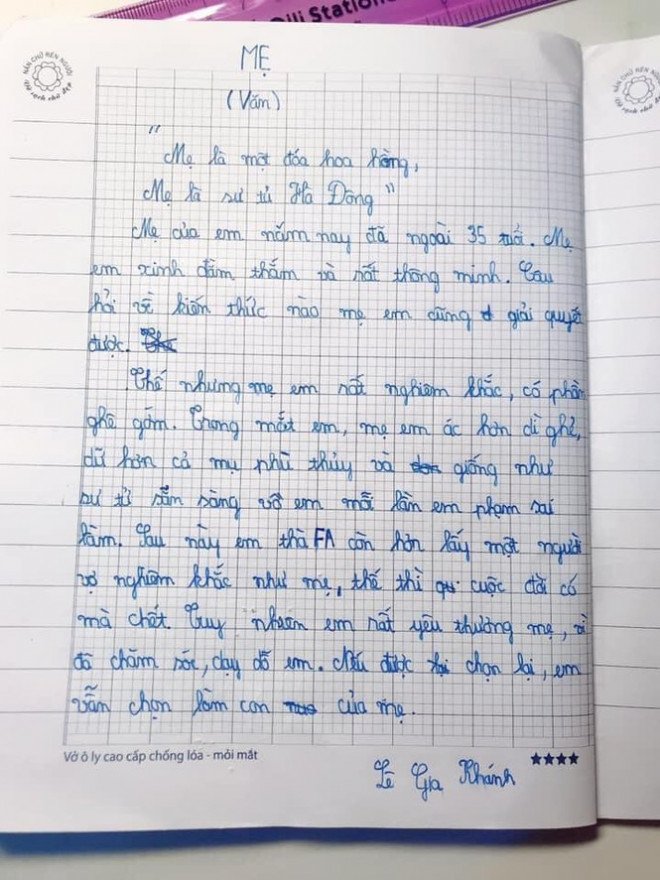 Olli Station
NẮN CHỮ RÈN NGƯỜI
Vở sạch chữ đẹp
NẮN CHỮ RÈN NGƯỜI
Vở sạch chữ đẹp
MẸ
(Văn)
"Mẹ là một đóa hoa hồng,
Mẹ là sư tử Hà Đông"
Mẹ của em năm nay đã ngoài 35 tuổi. Mẹ
em xinh đằm thắm và rất thông minh. Câu
hỏi về kiến thức nào mẹ em cũng giải quyết
được.
Thế nhưng mẹ em rất nghiêm khắc, có phần
ghê gớm. Trong mắt em, mẹ em ác hơn dì ghẻ,
dữ hơn cả mụ phù thủy và giống như
sư tử sẵn sàng vồ em mỗi lần em phạm sai
lầm. Sau này em thà FA còn hơn lấy một người
vợ nghiêm khắc như mẹ, thế thì cuộc đời có
mà chết. Tuy nhiên em rất yêu thương mẹ, vì
đã chăm sóc, dạy dỗ em. Nếu được chọn lại, em
vẫn chọn làm con của mẹ.
Vở ô ly cao cấp chống lóa - mỏi mắt
Lê Gia Khánh